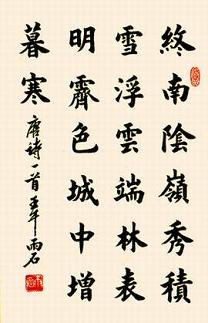 終南陰嶺秀積
雪浮雲端林表
明霽色城中增
暮寒
唐詩一首壬午雨石